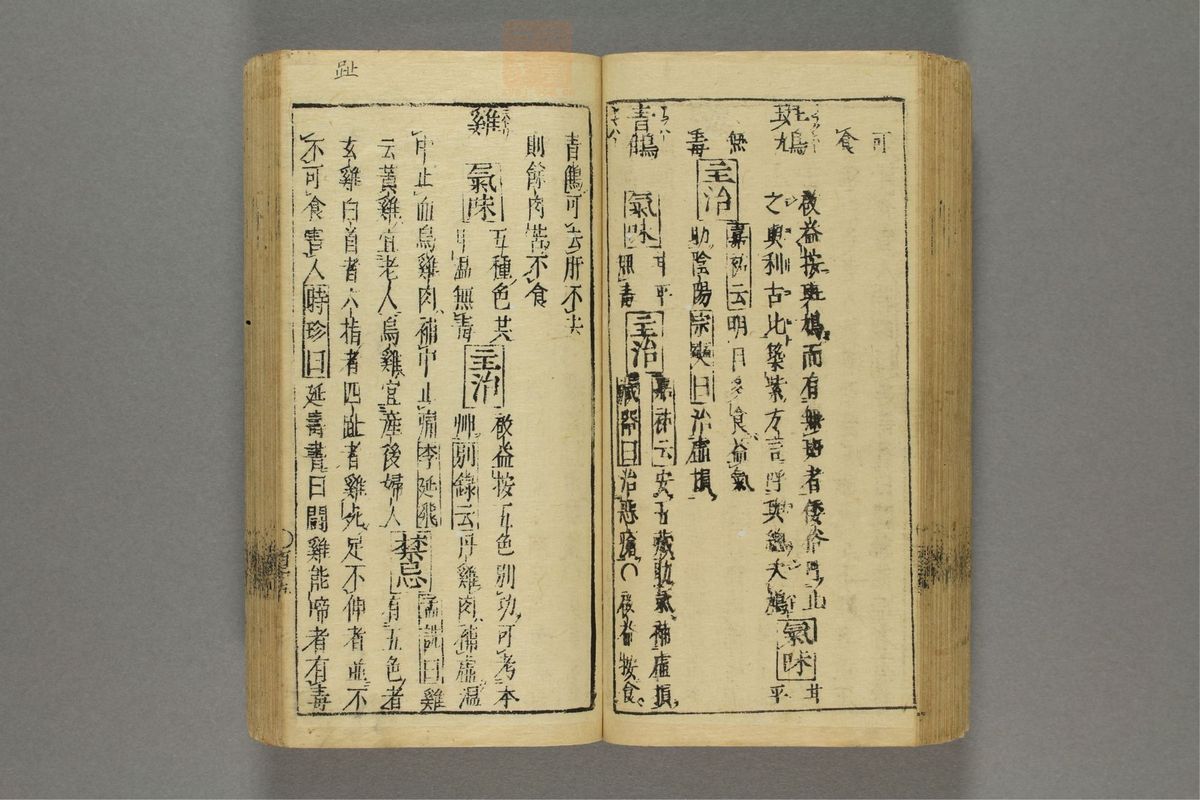 可
食
斑鳩
啟益按斑鳩而有無斑者倭俗円山
之與利古比築紫方言呼斑鳩大鳩
氣味
甘平
無
毒
主治
嘉祐云明目多食益氣
助陰陽宗奭曰治虛損
青鶴
氣味
甘平
無毒
主治
嘉祐云安五臓助氣補虛損
藏器曰治惡瘡〇啟益按食
青鶴可去肝不去
則餘肉苦不食
雞
氣味
五種色共
甲溫無毒
主治
啟益按五色別功可考本
艸別錄云丹雞肉補虛溫
中止血烏雞肉補中止痛李延飛
云黃雞宜老人烏雞宜產後婦人
禁忌
孟詵曰雞
有五色者
玄雞白首者六指者四趾者雞死足不伸者並不
不可食害人時珍曰延壽書曰鬪雞能啼者有毒
趾